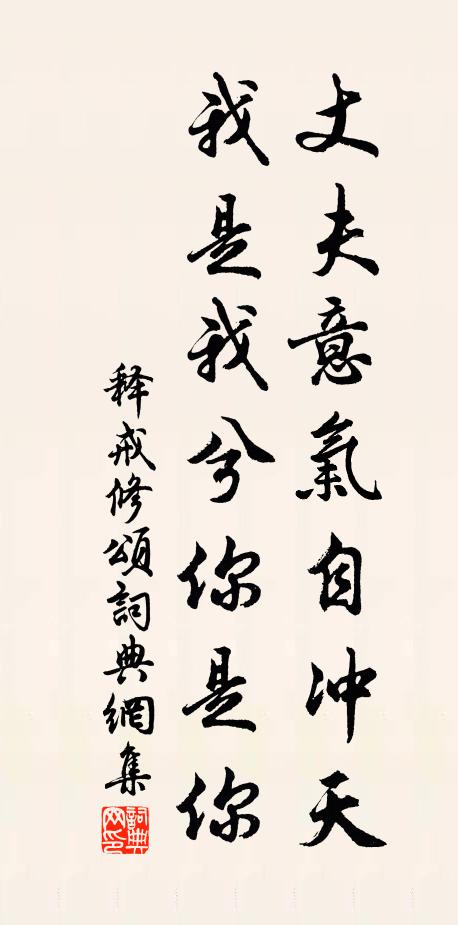 丈夫意氣自冲天
我是我兮你是你
释戒修頌詞典網集
詞典
网印